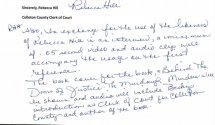 Rebecca Hill
Sincerely, Rebecca Hill
Colleton County Clerk of Court
Also, in exchange for the use of the likeness
of Rebecca Hill is an interview, a minimum
of .05 second video and audio clip will
accompany the usage on the first
reference.
The book cover for the book, Behind The
Doors of Justice: The Murdaugh Murders will
be shown and audio will include Becky's
introduction as Clerk of Court for Colleton
County and author of the book.